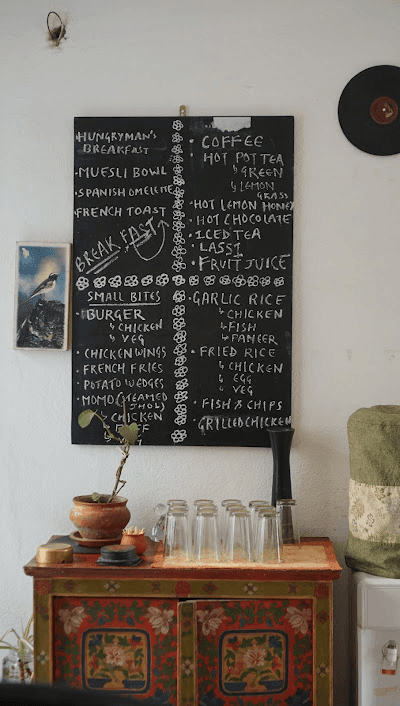 HUNGRYMAN'S
BREAKFAST
MUESLI BOWL
SPANISH OMELETTE
FRENCH TOAST
BREAKFAST
COFFEE
HOT POT TEA
GREEN
LEMON
GRASS
HOT LEMON HONEY
HOT CHOCOLATE
ICED TEA
LASSI
FRUIT JUICE
SMALL BITES
BURGER
CHICKEN
VEG
CHICKEN WINGS
FRENCH FRIES
POTATO WEDGES
MOMO (STEAMED
JHOL)
CHICKEN
GARLIC RICE
CHICKEN
FISH
PANEER
FRIED RICE
CHICKEN
EGG
VEG
FISH & CHIPS
GRILLED CHICKEN